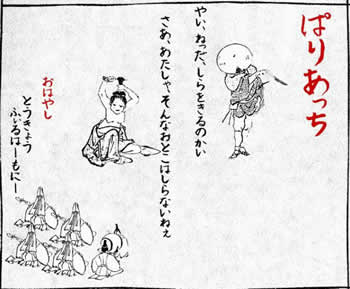 ぱりあっち
やい、ねっだ、しらをきるのかい
さあ、あたしゃ、そんなおとこはしらないねぇ
おはやし
とうきょう
ふぃるはーもにー